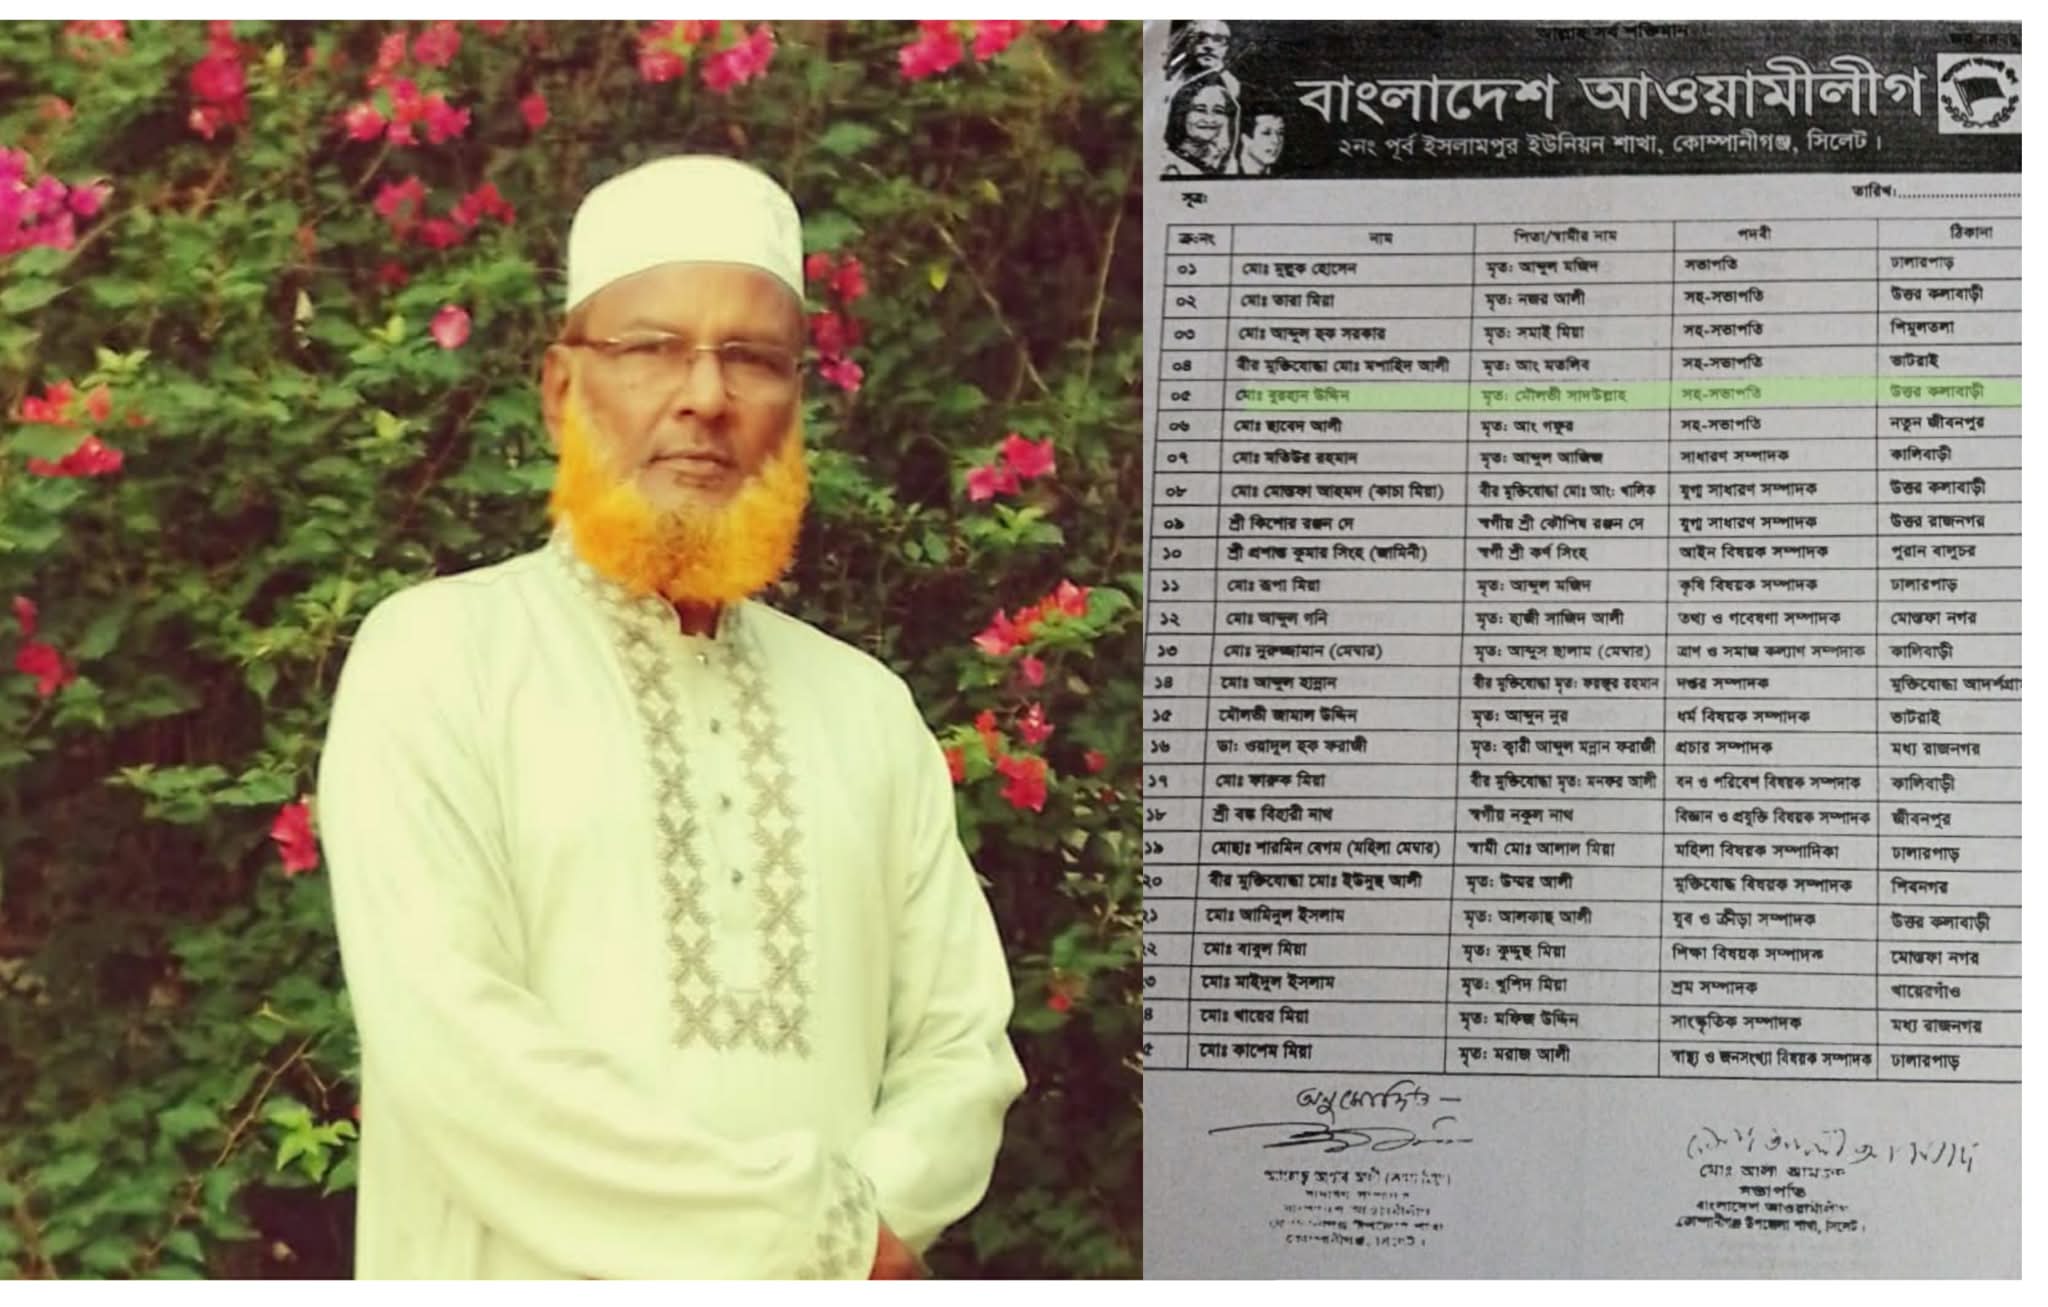 আল্লাহ সর্ব শক্তিমান
বাংলাদেশ আওয়ামীলীগ
২নং পূর্ব ইসলামপুর ইউনিয়ন শাখা, কোম্পানীগঞ্জ, সিলেট।
সূত্রঃ তারিখঃ..............................
ক্রঃনং নাম পিতা/স্বামীর নাম পদবী ঠিকানা
০১ মোঃ মুল্লুক হোসেন মৃতঃ আব্দুল মজিদ সভাপতি ঢালারপাড়
০২ মোঃ তারা মিয়া মৃতঃ নজর আলী সহ-সভাপতি উত্তর কলাবাড়ী
০৩ মোঃ আব্দুল হক সরকার মৃতঃ সমাই মিয়া সহ-সভাপতি শিমুলতলা
০৪ বীর মুক্তিযোদ্ধা মোঃ মশাহিদ আলী মৃতঃ আং মতলিব সহ-সভাপতি ভাটরাই
০৫ মোঃ বুরহান উদ্দিন মৃতঃ মৌলভী সাদউল্লাহ সহ-সভাপতি উত্তর কলাবাড়ী
০৬ মোঃ ছাবেদ আলী মৃতঃ আং গফুর সহ-সভাপতি নতুন জীবনপুর
০৭ মোঃ মতিউর রহমান মৃতঃ আব্দুল আজিজ সাধারণ সম্পাদক কালিবাড়ী
০৮ মোঃ মোস্তফা আহমদ (কাচা মিয়া) বীর মুক্তিযোদ্ধা মোঃ আং খালিক যুগ্ম সাধারণ সম্পাদক উত্তর কলাবাড়ী
০৯ শ্রী কিশোর রঞ্জন দে স্বর্গীয় শ্রী কৌশিষ রঞ্জন দে যুগ্ম সাধারণ সম্পাদক উত্তর রাজনগর
১০ শ্রী প্রশান্ত কুমার সিংহ (জামিনী) স্বর্গী শ্রী কর্ণ সিংহ আইন বিষয়ক সম্পাদক পুরান বালুচর
১১ মোঃ রূপা মিয়া মৃতঃ আব্দুল মজিদ কৃষি বিষয়ক সম্পাদক ঢালারপাড়
১২ মোঃ আব্দুল গনি মৃতঃ হাজী সাজিদ আলী তথ্য ও গবেষণা সম্পাদক মোস্তফা নগর
১৩ মোঃ নুরুজ্জামান (মেম্বার) মৃতঃ আব্দুস ছালাম (মেম্বার) ত্রাণ ও সমাজ কল্যাণ সম্পদাক কালিবাড়ী
১৪ মোঃ আব্দুল হান্নান বীর মুক্তিযোদ্ধা মৃতঃ ফয়জুর রহমান দপ্তর সম্পাদক মুক্তিযোদ্ধা আদর্শগ্রাম
১৫ মৌলভী জামাল উদ্দিন মৃতঃ আব্দুন নুর ধর্ম বিষয়ক সম্পাদক ভাটরাই
১৬ ডাঃ ওয়াদুল হক ফরাজী মৃতঃ ক্বারী আব্দুল মন্নান ফরাজী প্রচার সম্পাদক মধ্য রাজনগর
১৭ মোঃ ফারুক মিয়া বীর মুক্তিযোদ্ধা মৃতঃ মনফর আলী বন ও পরিবেশ বিষয়ক সম্পদাক কালিবাড়ী
১৮ শ্রী বঙ্ক বিহারী নাথ স্বর্গীয় নকুল নাথ বিজ্ঞান ও প্রযুক্তি বিষয়ক সম্পাদক জীবনপুর
১৯ মোছাঃ শারমিন বেগম (মহিলা মেম্বার) স্বামী মোঃ আলাল মিয়া মহিলা বিষয়ক সম্পাদিকা ঢালারপাড়
২০ বীর মুক্তিযোদ্ধা মোঃ ইউনুছ আলী মৃতঃ উম্মর আলী মুক্তিযোদ্ধ বিষয়ক সম্পাদক শিবনগর
২১ মোঃ আমিনুল ইসলাম মৃতঃ আলকাছ আলী যুব ও ক্রীড়া সম্পাদক উত্তর কলাবাড়ী
২২ মোঃ বাবুল মিয়া মৃতঃ কুদ্দুছ মিয়া শিক্ষা বিষয়ক সম্পাদক মোস্তফা নগর
৩ মোঃ মাইদুল ইসলাম মৃতঃ খুশিদ মিয়া শ্রম সম্পাদক খায়েরগাঁও
৪ মোঃ খায়ের মিয়া মৃতঃ মফিজ উদ্দিন সাংস্কৃতিক সম্পাদক মধ্য রাজনগর
৫ মোঃ কাশেম মিয়া মৃতঃ মরাজ আলী স্বাস্থ্য ও জনসংখ্যা বিষয়ক সম্পাদক ঢালারপাড়
অনুমোদিত
মোঃ আলী আমজদ
সভাপতি
বাংলাদেশ আওয়ামীলীগ
কোম্পানীগঞ্জ উপজেলা শাখা, সিলেট।